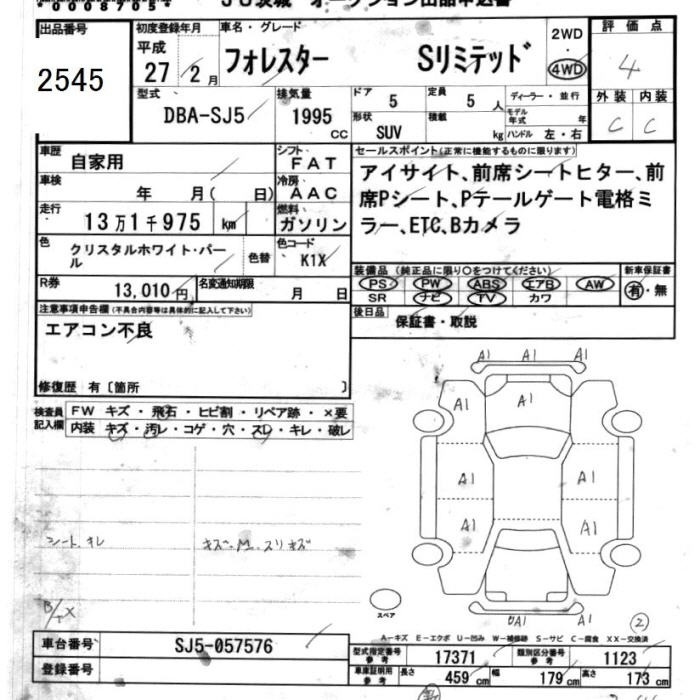 00087054 JU茨城 オークション出品申込書
出品番号 2545
初度登録年月 平成 27 / 2 月
車名・グレード フォレスター Sリミテッド
2WD
4WD
評価点 4
外装 内装
C C
型式 DBA-SJ5
排気量 1995 CC
ドア 5 定員 5 人
形状 SUV 積載 kg
ディーラー・並行
モデル年式 年
ハンドル 左・右
車歴 自家用
シフト FAT
車検 年 月( 日)
冷房 AAC
走行 13万1千975 km
燃料 ガソリン
色 クリスタルホワイト・パール
色替
色コード K1X
R券 13,010円
名変通知期限 月 日
セールスポイント(正常に機能するものに限ります)
アイサイト、前席シートヒター、前
席Pシート、Pテールゲート電格ミ
ラー、ETC、Bカメラ
装備品(純正品に限り○をつけてください)
PS PW ABS エアB AW
SR ナビ TV カワ
新車保証書
有・無
後日品 保証書・取説
注意事項申告欄(不具合内容等は具体的に記入して下さい)
エアコン不良
修復歴 有〔箇所 〕
検査員記入欄
FW キズ・飛石・ヒビ割・リペア跡・×要
内装 キズ・汚レ・コゲ・穴・スレ・キレ・破レ
シート キレ
キズ・M. スリキズ
B/TX
A1 A1 A1
A1 A1 A1
A1 A1
A1 A1
スペア
A1
②
A-キズ E-エクボ U-凹み W-補修跡 S-サビ C-腐食 XX-交換済
車台番号 SJ5-057576
登録番号
型式指定番号 参考 17371
類別区分番号 参考 1123
車庫証明用 参考 長さ 459 cm 幅 179 cm 高さ 173 cm